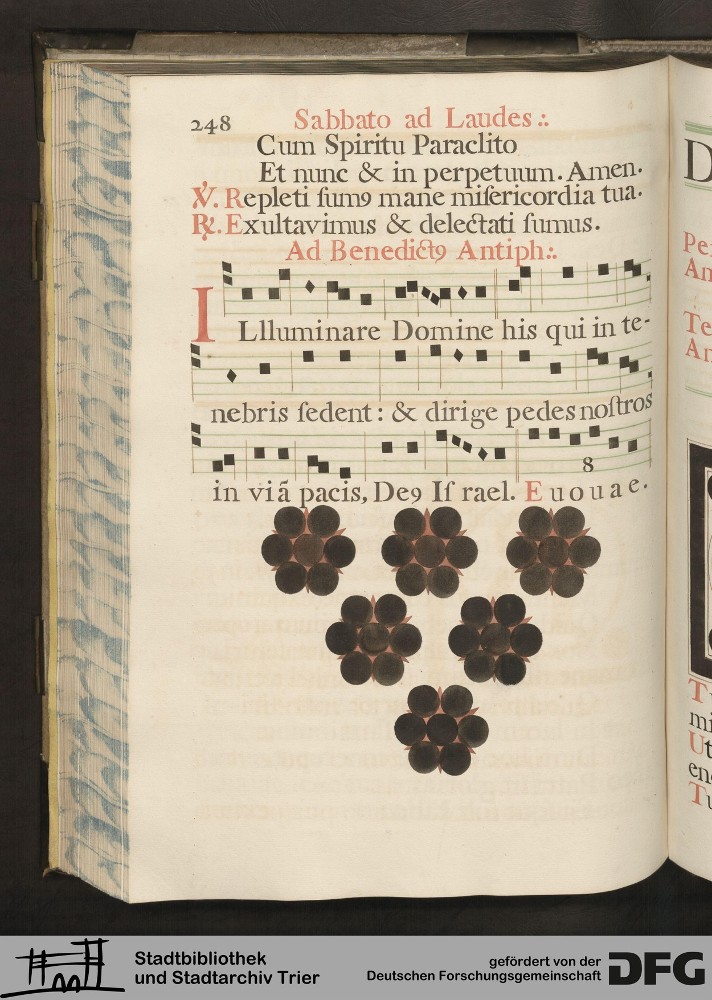 248 Sabbato ad Laudes :.
Cum Spiritu Paraclito
Et nunc & in perpetuum. Amen.
℣. Repleti ſumꝯ mane miſericordia tua.
℟. Exultavimus & delectati ſumus.
Ad Benedictꝯ Antiph:.
ILlluminare Domine his qui in te-
nebris ſedent : & dirige pedes noſtros
8
in viã pacis, Deꝯ Iſ rael. E u o u a e.
D
Pe
An
Te
An
T
mi
Ut
en
Tu
Stadtbibliothek
und Stadtarchiv Trier
gefördert von der
Deutschen Forschungsgemeinschaft
DFG